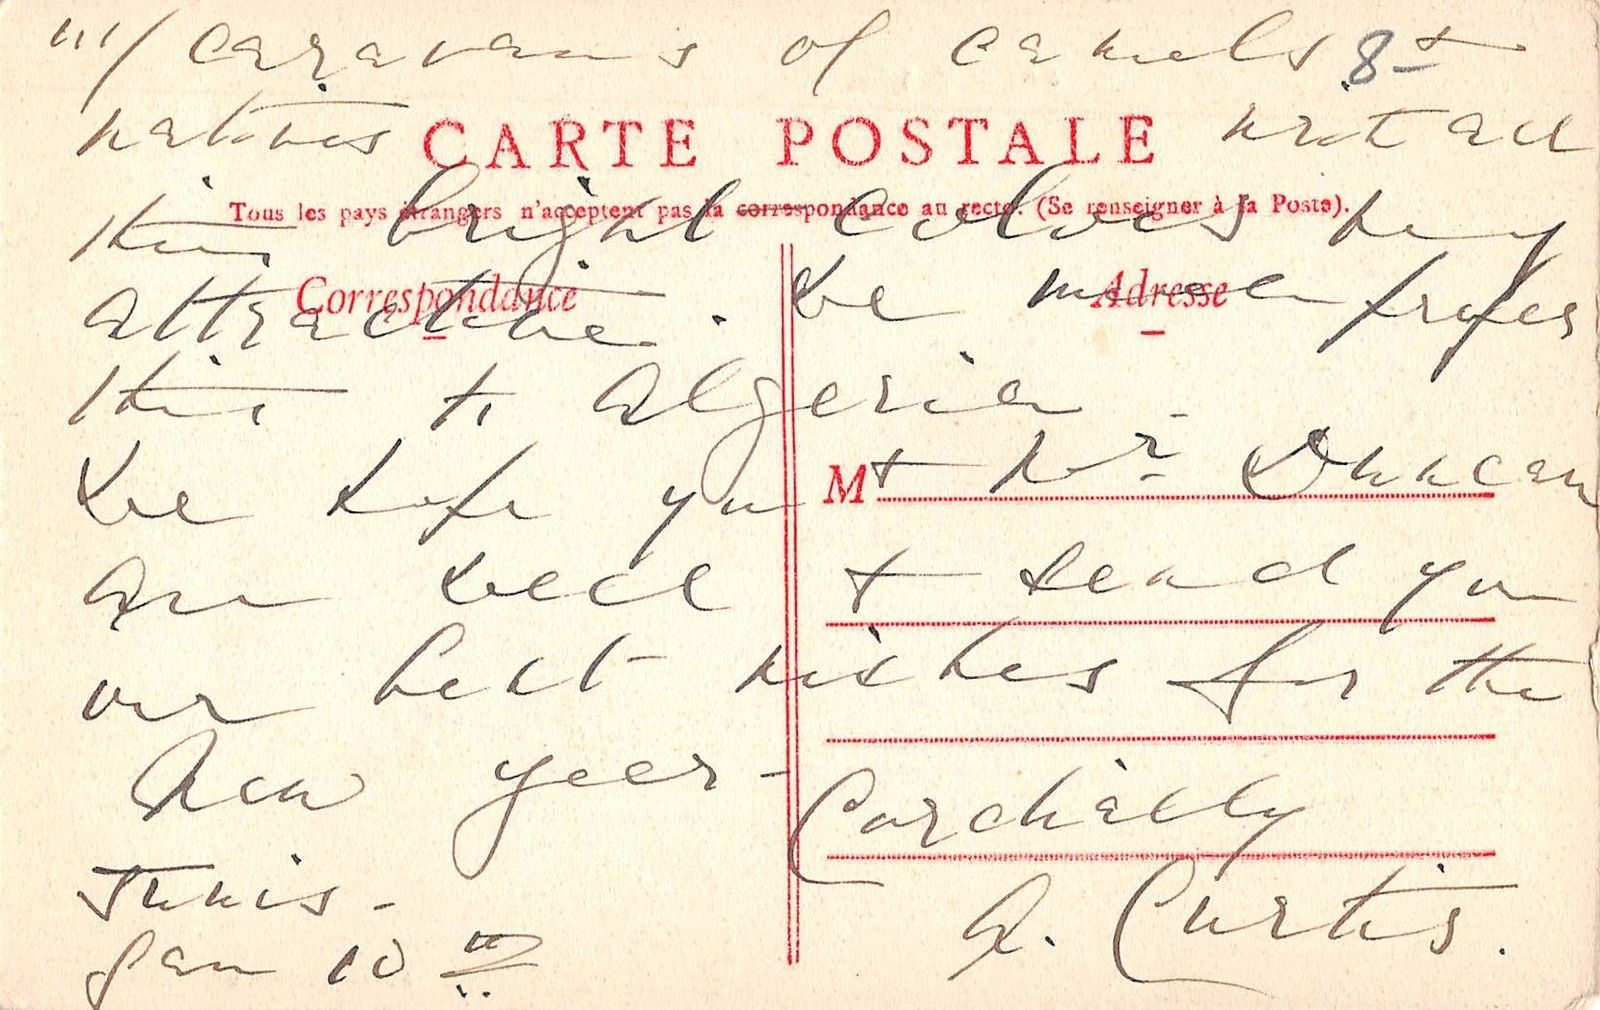 III/ caravans of camels 8 +
natives CARTE POSTALE with all
Tous les pays étrangers n'acceptent pas la correspondance au recto. (Se renseigner à la Poste).
their bright colors very
Correspondance Adresse
attractive. We much prefer
this to Algeria -
We hope you M + Mr Duncan
are well & send you
our best wishes for the
New Year -
Cordially
Tunis - A. Curtis.
Jan 10